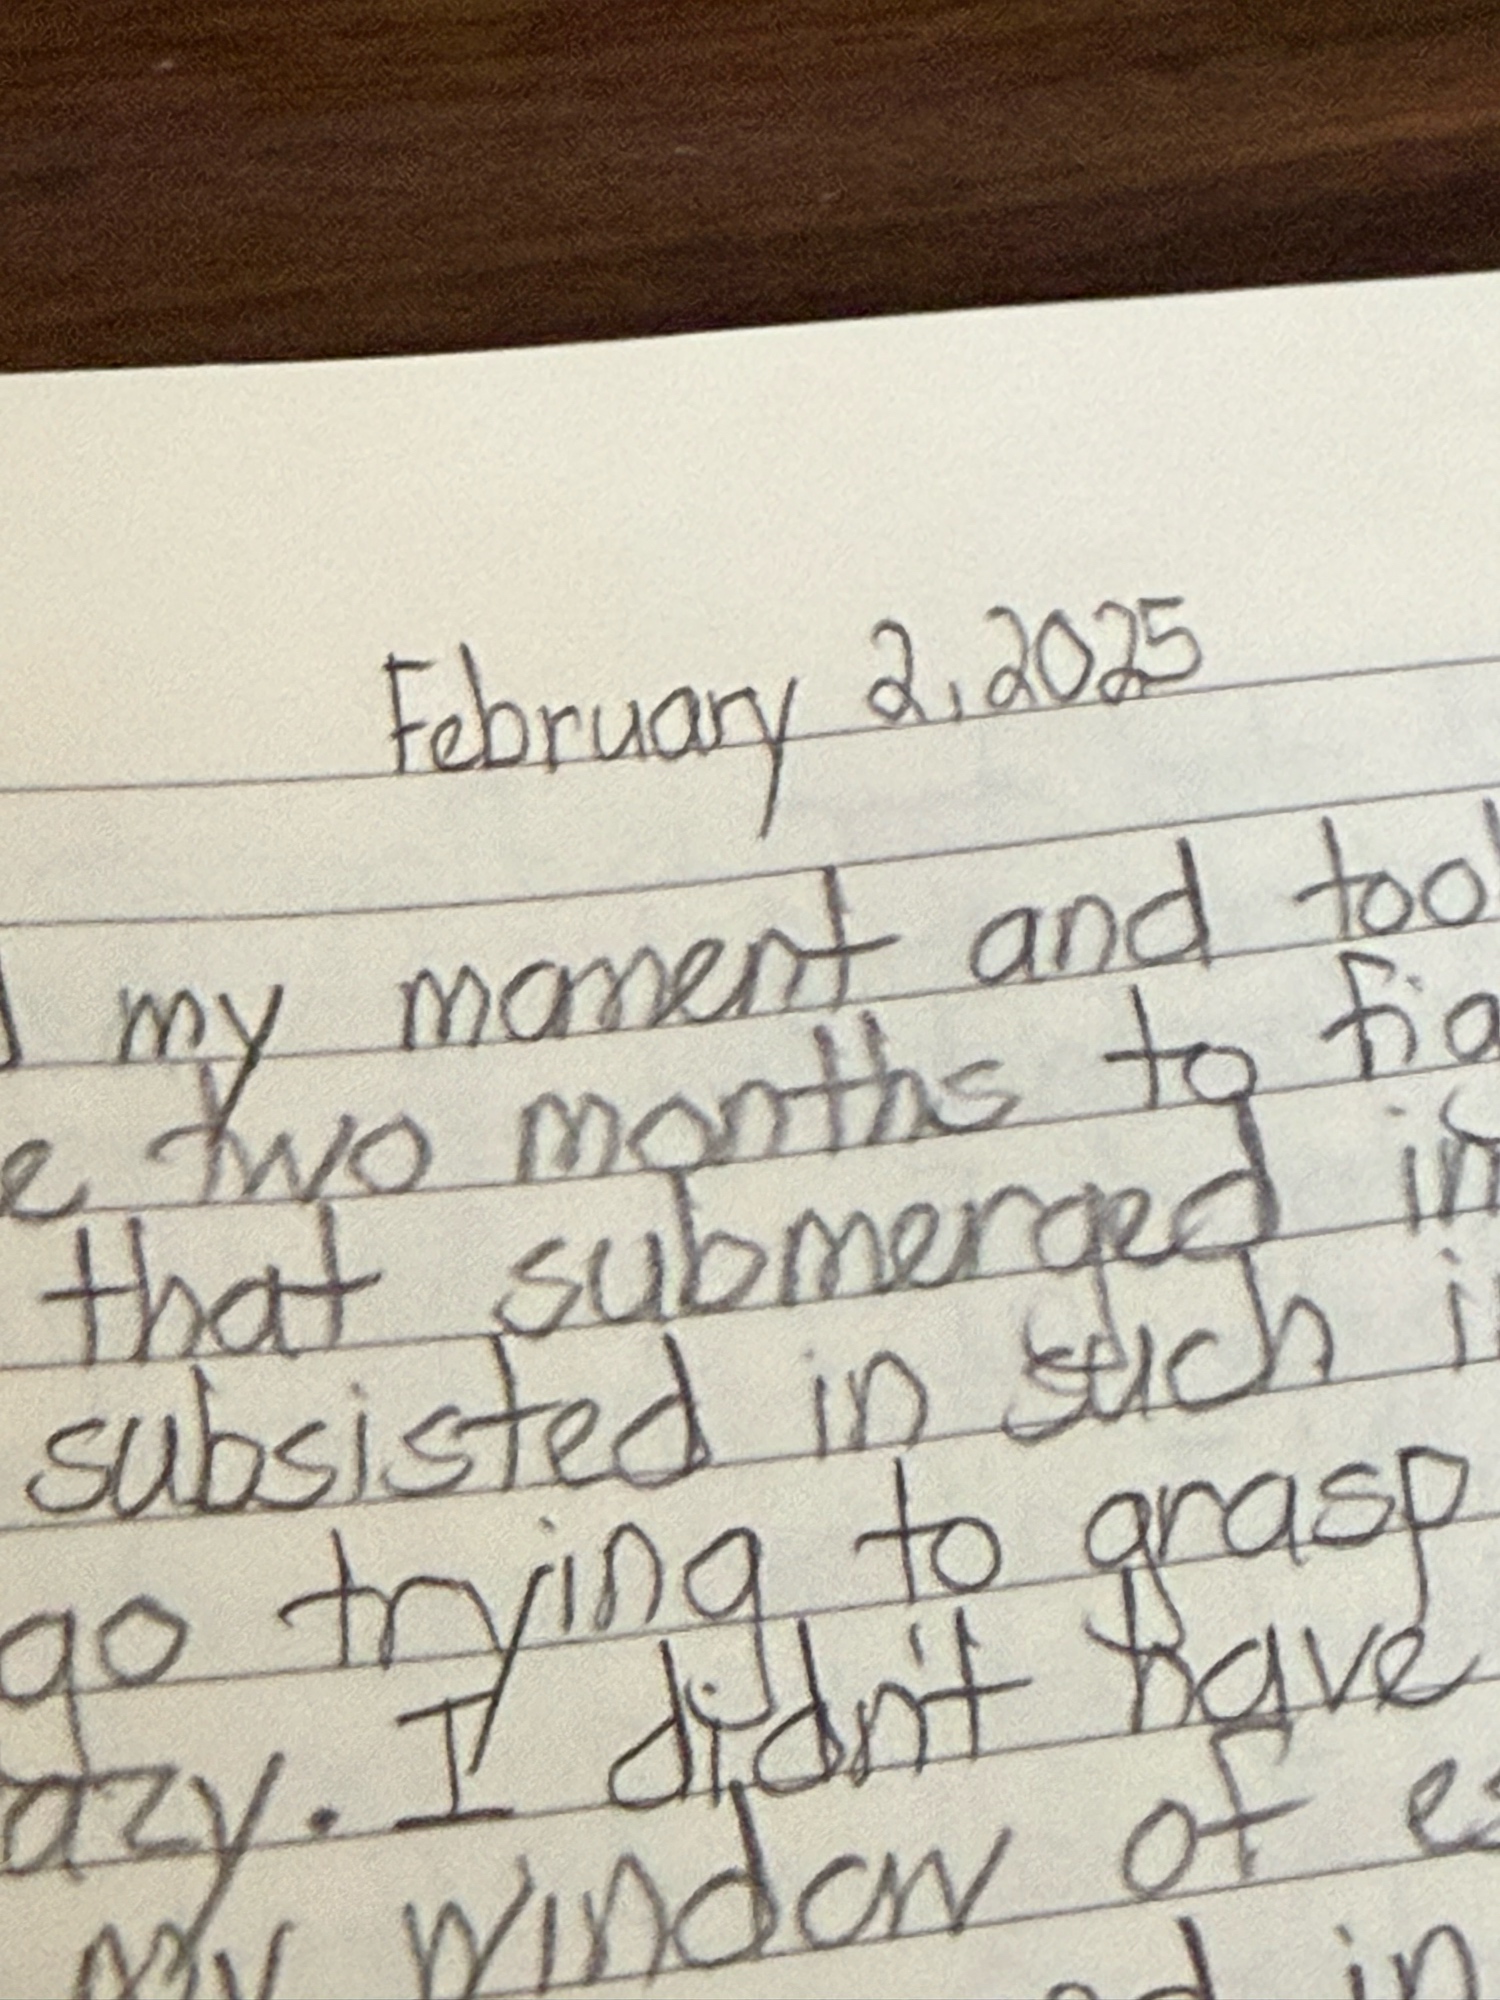 February 2, 2025
my moment and
two months to
that submerged in
subsisted in such
go trying to grasp
I didn't have
my window of
in